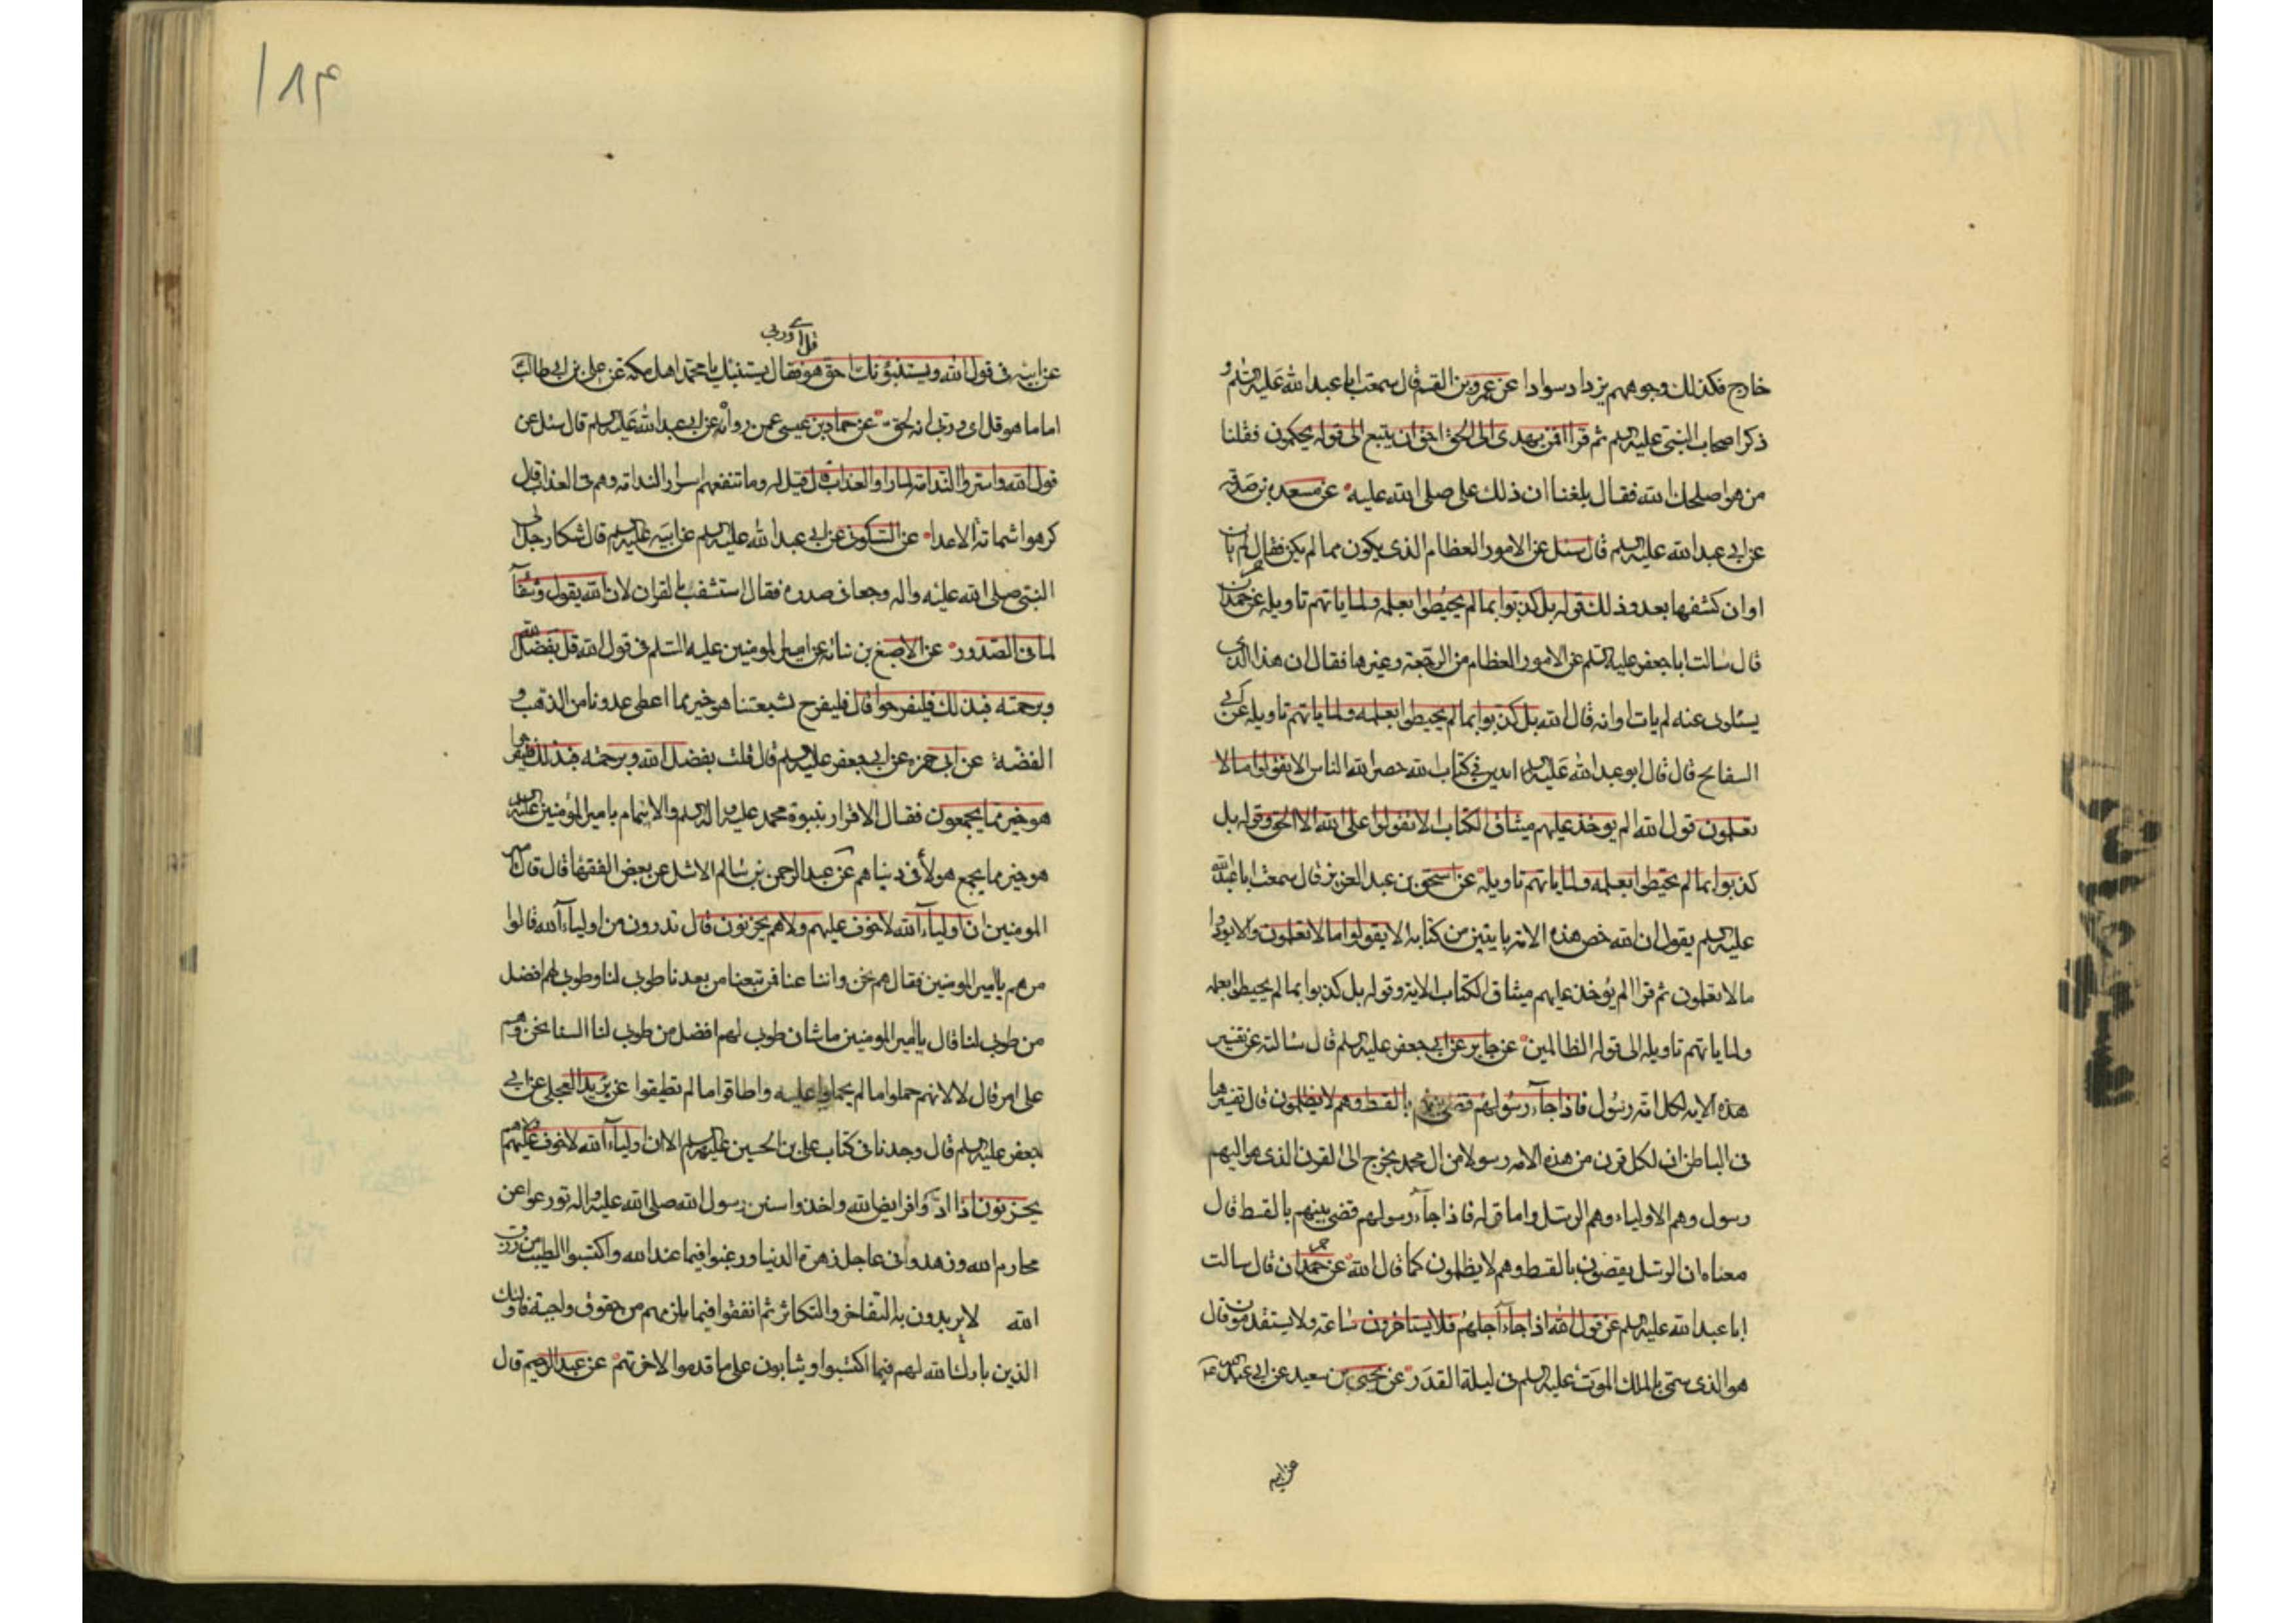 خارج فكذلك وجوههم يزدادسوادا عن عمرو بن القسم قال سمعت ابا عبد الله عليه السلم و
ذكر اصحاب النبي عليه السلم ثم قرا افمن يهدى الى الحق احق ان يتبع الى قوله يحكمون فقلنا
من هو اصلحك الله فقال بلغنا ان ذلك على صلى الله عليه عن مسعدة بن صدقة
عن ابي عبد الله عليه السلم قال سئل عن الامور العظام الذى يكون مما لم يكن فقال لم يان
اوان كشفها بعد وذلك قوله بل كذبوا بما لم يحيطوا بعلمه ولما ياتهم تاويله عن حمران
قال سالت ابا جعفر عليه السلم عن الامور العظام من الرجعة وغيرها فقال ان هذا الذى
يسئلونى عنه لم يات اوانه قال الله بل كذبوا بما لم يحيطوا بعلمه ولما ياتهم تاويله عن ابي
السفاتج قال قال ابو عبد الله عليه السلم ايتين في كتاب الله حصر الله الناس الا يقولوا ما لا
تعلمون قول الله الم يوخذ عليهم ميثاق الكتاب لا تقولوا على الله الا الحق وقوله بل
كذبوا بما لم يحيطوا بعلمه ولما ياتهم تاويله عن اسحق بن عبد العزيز قال سمعت ابا عبد الله
عليه السلم يقول ان الله خص هذه الامة بايتين من كتابه الا يقولوا ما لا تعلمون والا يردوا
ما لا تعلمون ثم قرا الم يؤخذ عليهم ميثاق الكتاب الاية وقوله بل كذبوا بما لم يحيطوا بعلمه
ولما ياتهم تاويله الى قوله الظالمين عن جابر عن ابي جعفر عليه السلم قال سالته عن تفسير
هذه الاية لكل امة رسول فاذا جآء رسولهم قضى بينهم بالقسط وهم لا يظلمون قال تفسيرها
في الباطن ان لكل قرن من هذه الامة رسولا من ال محمد يخرج الى القرن الذى هو اليهم
رسول وهم الاولياء وهم الرسل واما قوله فاذا جآء رسولهم قضى بينهم بالقسط قال
معناه ان الرسل يقضون بالقسط وهم لا يظلمون كما قال الله عن حمران قال سالت
ابا عبد الله عليه السلم عن قول الله اذا جآء اجلهم فلا يستاخرون ساعة ولا يستقدمون قال
هو الذى سمى بالملك الموت عليه السلم في ليلة القدر عن يحيى بن سعيد عن ابي عبد الله
عن ابيه
١٨٤
قل اى وربى
عن ابيه في قول الله ويستنبؤنك احق هو فقال يستنبئك يا محمد اهل مكه عن على بن ابى طالب
اماما هو قل اى وربي انه لحق عن حماد بن عيسى عمن رواه عن ابى عبد الله عليه السلم قال سئل عن
قول الله واسروا الندامة لما راوا العذاب قال قيل له وما تنفعهم اسرار الندامة وهم فى العذاب قال
كرهوا شماتة الاعداء عن السكونى عن ابي عبد الله عليه السلم عن ابيه عليه السلم قال شكا رجل الى
النبي صلى الله عليه واله وجعا فى صدره فقال استشف بالقران لان الله يقول وشفآء
لما فى الصدور عن الاصبغ بن نباته عن امير المومنين عليه السلم فى قول الله قل بفضل الله
وبرحمته فبذلك فليفرحوا قال فليفرح شيعتنا هو خير مما اعطى عدونا من الذهب و
الفضة عن ابى حمزه عن ابى جعفر عليه السلم قال قلت بفضل الله وبرحمته فبذلك فليفرحوا
هو خير مما يجمعون فقال الاقرار بنبوة محمد عليه واله السلم والايتمام بامير المؤمنين عليه السلم
هو خير مما يجمع هولاء فى دنياهم عن عبد الرحمن بن سالم الاشل عن بعض الفقها قال قال امير
المومنين ان اولياء الله لا خوف عليهم ولا هم يحزنون قال تدرون من اوليآء الله قالوا
من هم يا امير المومنين فقال هم نحن واتباعنا فمن تبعنا من بعدنا طوبى لنا وطوبى لهم افضل
من طوبى لنا قال يا امير المومنين ما شان طوبى لهم افضل من طوبى لنا السنا نحن وهم
على امر قال لا لانهم حملوا ما لم يحملوا عليه واطاقوا ما لم تطيقوا عن بريد العجلى عن ابي
جعفر عليه السلم قال وجدنا فى كتاب على بن الحسين عليهم السلم الا ان اولياء الله لا خوف عليهم ولا هم
يحزنون اذا ادوا فرايض الله واخذوا سنن رسول الله صلى الله عليه واله تورعوا عن
محارم الله وزهدوا فى عاجل زهرة الدنيا ورغبوا فيما عند الله واكتسبوا الطيب من رزق
الله لا يريدون به التفاخر والتكاثر ثم انفقوا فيما يلزمهم من حقوق واجبة فاولئك
الذين بارك الله لهم فيما اكتسبوا ويثابون على ما قدموا لاخرتهم عن عبد الرحيم قال